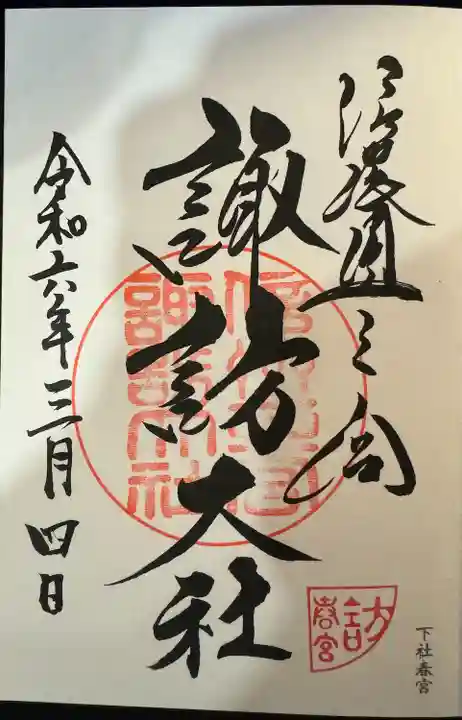 信濃國一之宮
諏訪大社
令和六年三月四日
信濃國一之宮
諏訪大社
諏訪
春宮
下社春宮